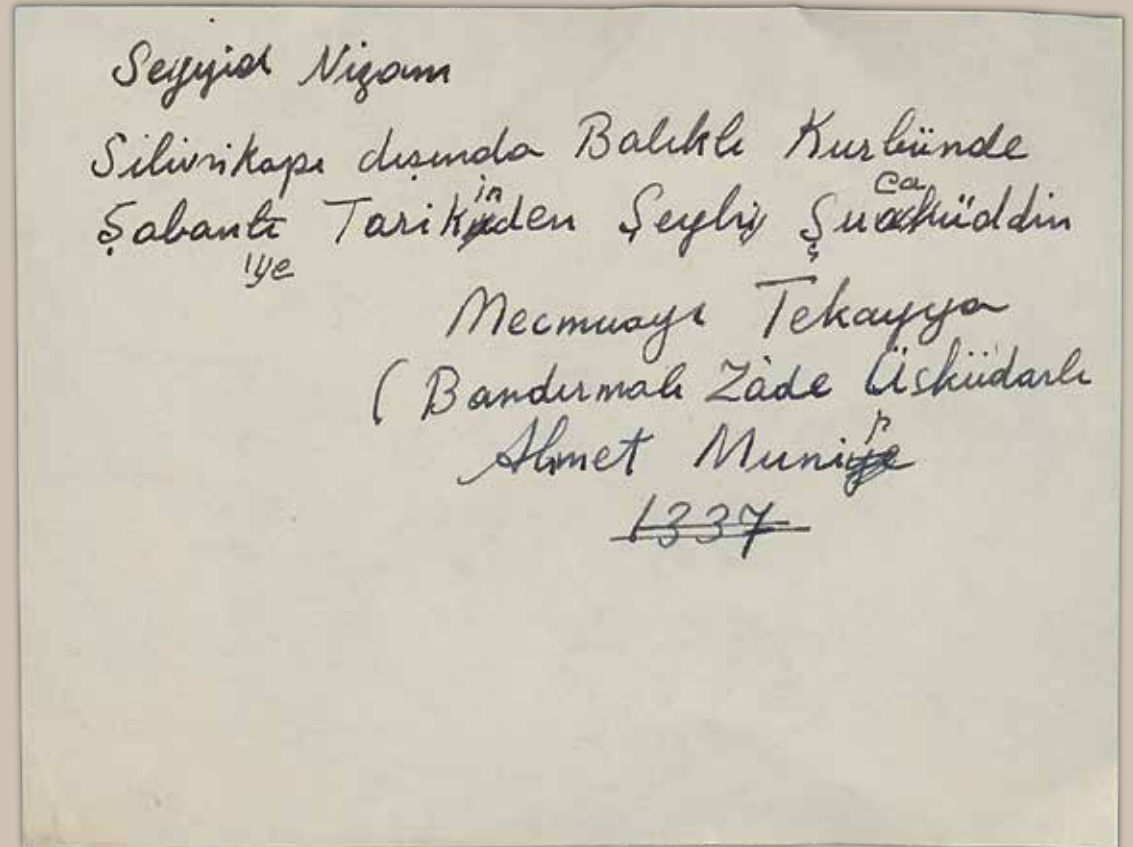 Seyyid Nizam
Silivrikapı dışında Balıklı Kurbünde
Şabantı Tarikinden Şeyhi Şucaüddin
iye
Mecmuayı Tekayya
( Bandırmalı Zâde Üsküdarlı
Ahmet Munir
1337